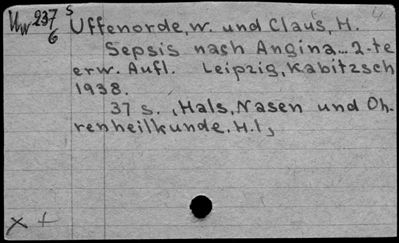 Uw 237 s
6
Uffenorde, W. und Claus, H.
Sepsis nach Angina... 2-te
erw. Aufl. Leipzig, Kabitzsch
1938.
37 s. , Hals, Nasen und Oh-
renheilkunde. H.1,
x +